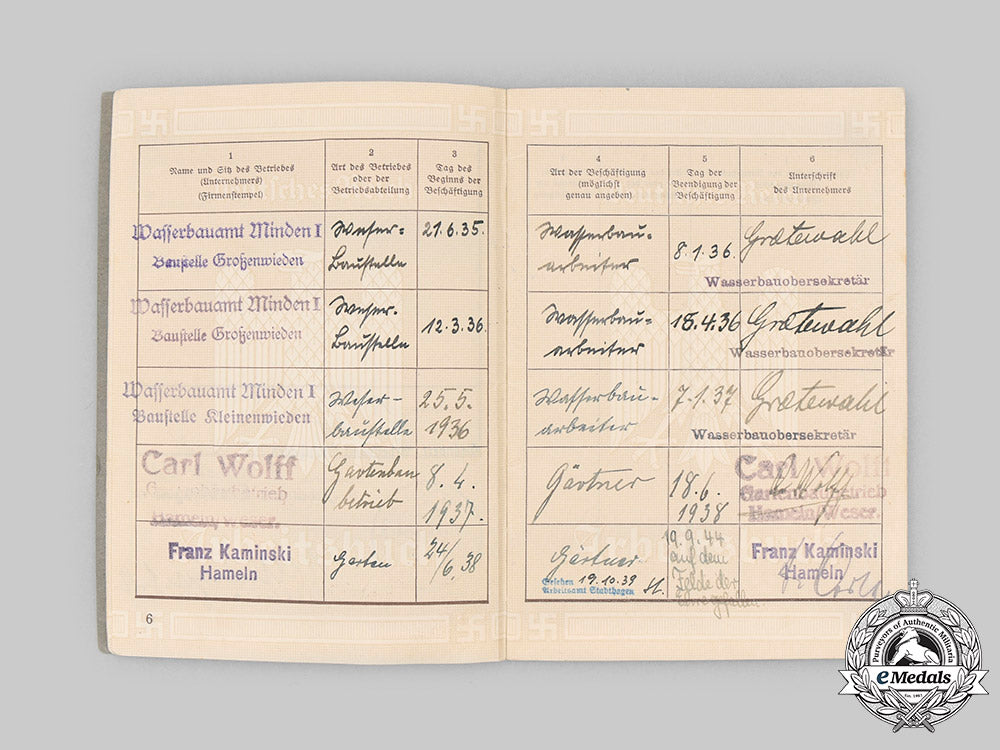 1
Name und Sitz des Betriebes
(Unternehmers)
(Firmenstempel)
2
Art des Betriebes
oder der
Betriebsabteilung
3
Tag des
Beginns der
Beschäftigung
Wasserbauamt Minden I
Baustelle Großenwieden
Weser-
Baustelle
21.6.35.
Wasserbauamt Minden I
Baustelle Großenwieden
Weser-
Baustelle
12.3.36.
Wasserbauamt Minden I
Baustelle Kleinenwieden
Weser-
baustelle
25.5.
1936
Carl Wolff
Gartenbaubetrieb
Hameln, Weser.
Gartenbau
betrieb
8.4.
1937.
Franz Kaminski
Hameln
Garten
24/6.38
6
4
Art der Beschäftigung
(möglichst
genau angeben)
5
Tag der
Beendigung der
Beschäftigung
6
Unterschrift
des Unternehmers
Wasserbau-
arbeiter
8.1.36.
Grätewahl
Wasserbauobersekretär
Wasserbau-
arbeiter
18.4.36
Grätewahl
Wasserbauobersekretär
Wasserbau-
arbeiter
7.1.37
Grätewahl
Wasserbauobersekretär
Gärtner
18.6.
1938
Carl Wolff
Gartenbaubetrieb
Hameln, Weser.
Gärtner.
Gesehen 19.10.39
Arbeitsamt Stadthagen
19.9.44
auf dem
Felde der
Ehre gefallen.
Franz Kaminski
Hameln
Purveyors of Authentic Militaria
eMedals